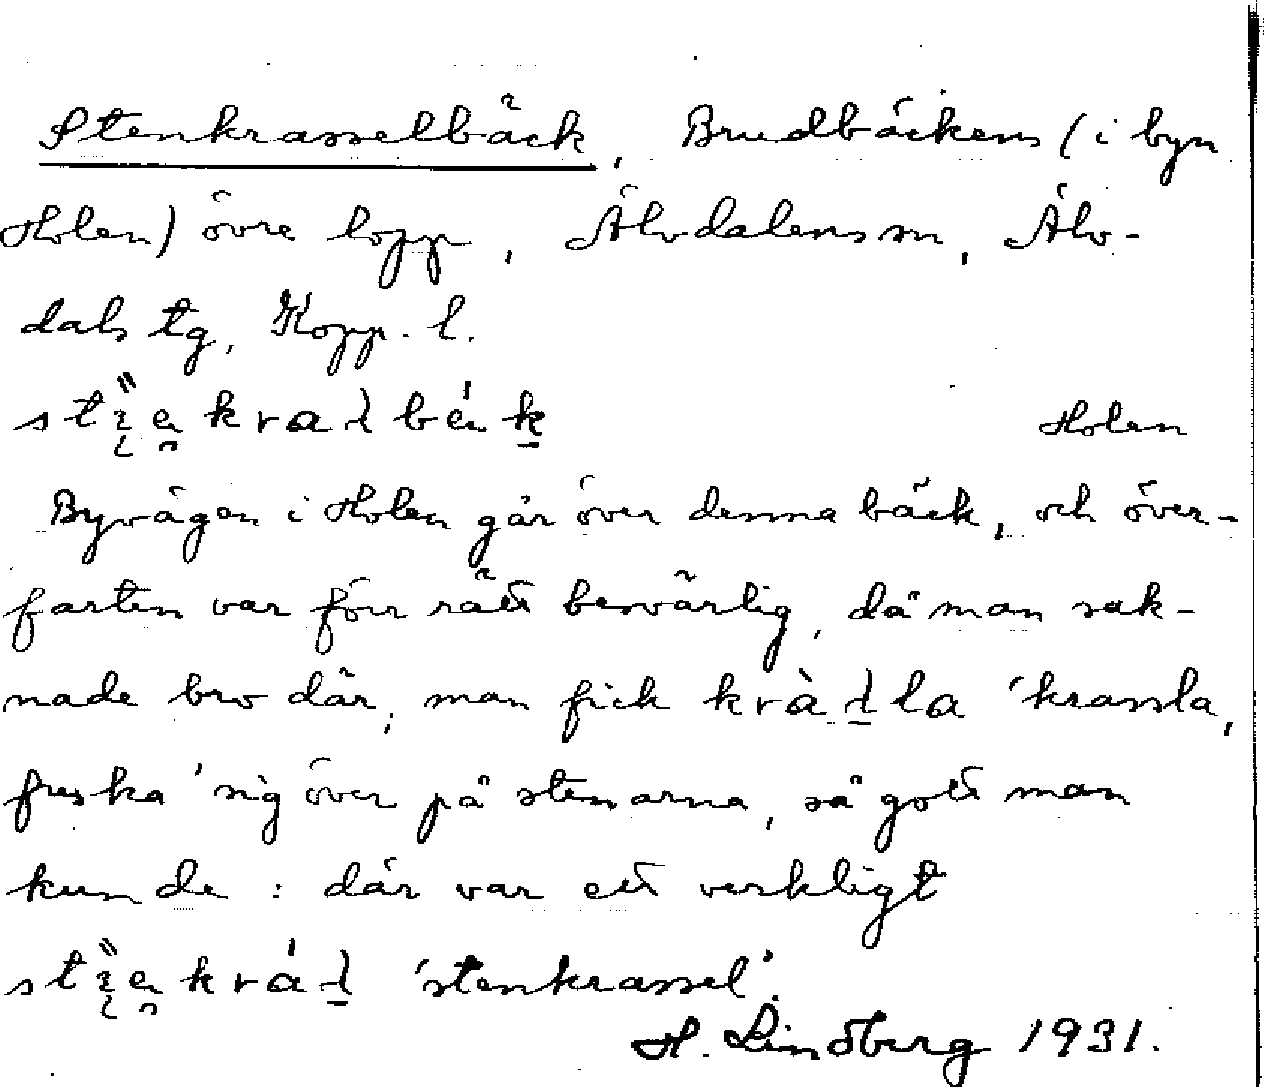 Stenkrasselbäck, Brudbäckens (i byn
Holen) övre lopp, Älvdalens sn, Älv-
dals tg, Kopp. l.
Holen
Byvägen i Holen går över denna bäck, och över-
farten var förr rätt besvärlig, då man sak-
nade bro där; man fick kràɬla 'krassla,
freska' sig över på stenarna, så gott man
kunde: där var ett verkligt
'stenkrassel'.
H. Lindberg 1931.